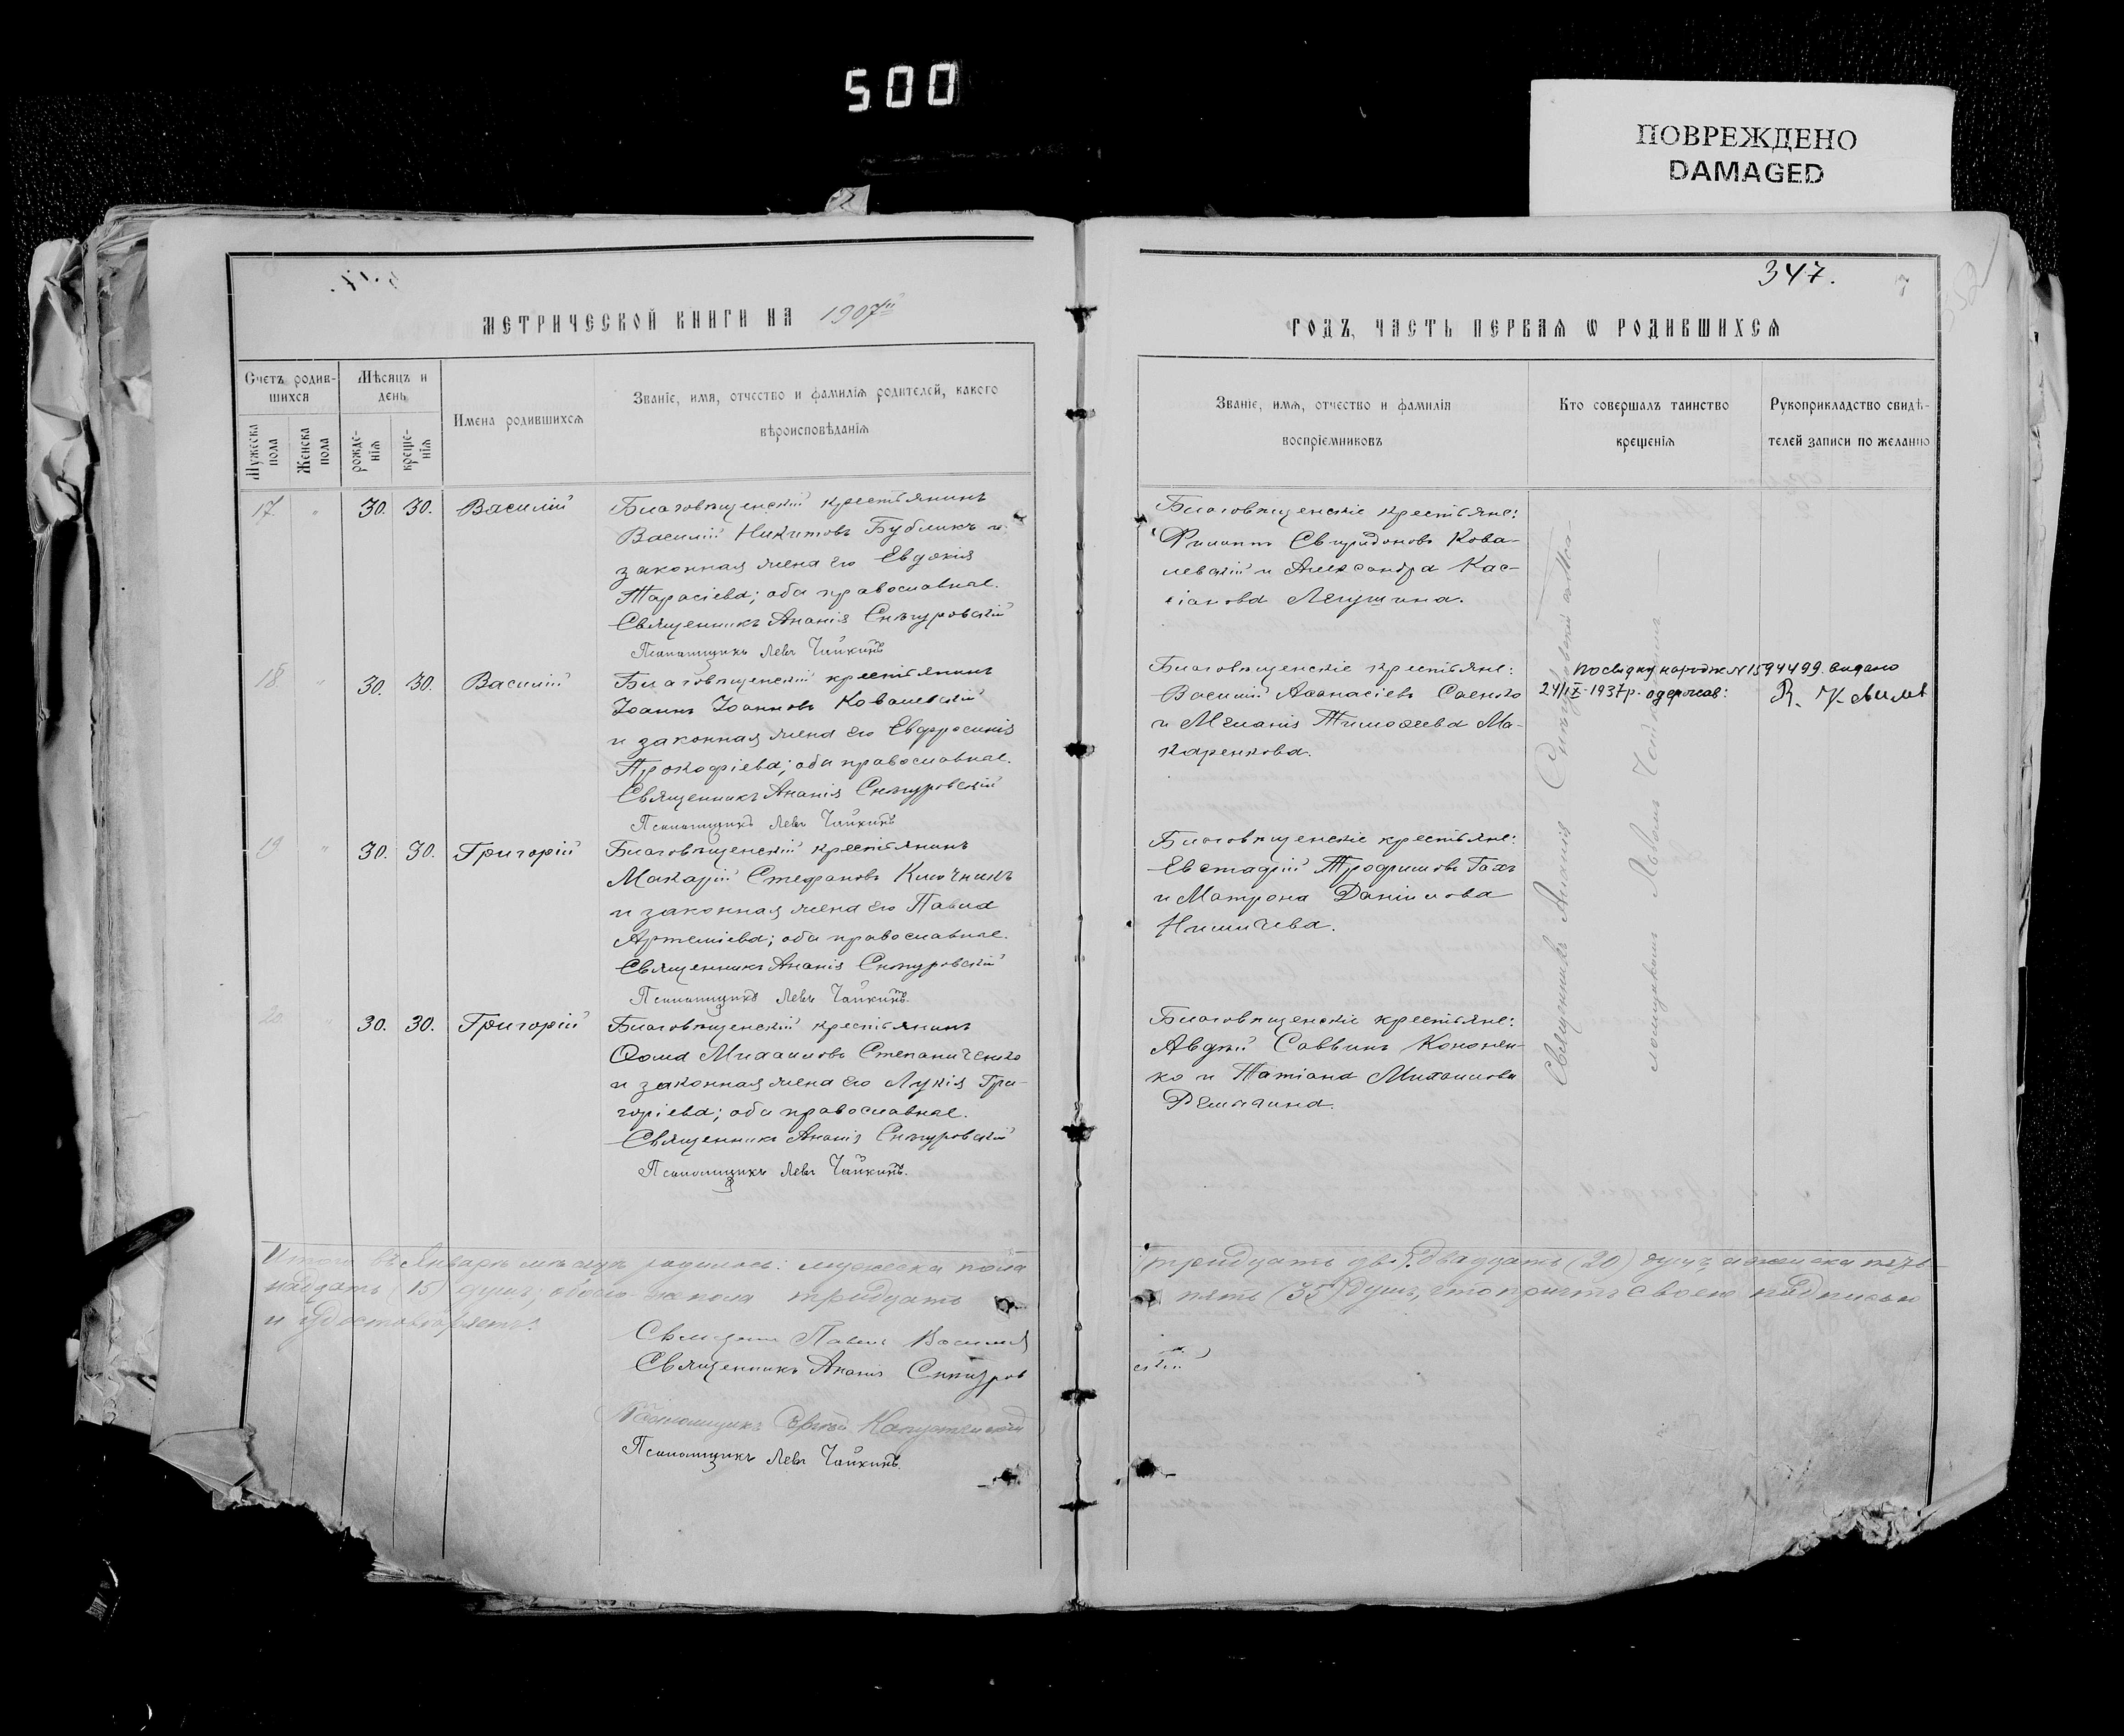 500
ПОВРЕЖДЕНО
DAMAGED
347.
МЕТРИЧЕСКОЙ КНИГИ НА 1907й
ГОДЪ, ЧАСТЬ ПЕРВАЯ Ѡ РОДИВШИХСЯ
Счетъ родив-
шихся
Мужеска пола
Женска пола
Мѣсяцъ и
день
рожде-
нія
креще-
нія
Имена родившихся
Званіе, имя, отчество и фамилія родителей, какого
вѣроисповѣданія
Званіе, имя, отчество и фамилія
воспріемниковъ
Кто совершалъ таинство
крещенія
Рукоприкладство свидѣ-
телей записи по желанію
17. " 30. 30. Василій
Благовѣщенскій крестьянинъ
Василій Никитовъ Бубликъ и
законная жена его Евдокія
Тарасіева; оба православные.
Священникъ Ананія Снѣгуровскій
Псаломщикъ Левъ Чайкинъ
Благовѣщенскіе крестьяне:
Филиппъ Свиридоновъ Кова-
левскій и Александра Кас-
сіанова
18. " 30. 30. Василій
Благовѣщенскій крестьянинъ
Іоаннъ Іоанновъ Ковалевскій
и законная жена его Евфросинія
Прокофіева; оба православные.
Священникъ Ананія Снѣгуровскій
Псаломщикъ Левъ Чайкинъ
Благовѣщенскіе крестьяне:
Василій Аѳанасіевъ Саенко
и Меланія Тимоѳеева Ма-
каренкова.
Посвідку народж №1594499 видано
24/IX-1937р. одержав:
19 " 30. 30. Григорій
Благовѣщенскій крестьянинъ
Макарій Стефановъ Ключникъ
и законная жена его Павла
Артеміева; оба православные.
Священникъ Ананія Снѣгуровскій
Псаломщикъ Левъ Чайкинъ.
Благовѣщенскіе крестьяне:
Евстафій Трофимовъ Гахъ
и Матрона Даніилова
20. " 30. 30. Григорій
Благовѣщенскій крестьянинъ
Ѳома Михаиловъ Степаниченко
и законная жена его Лукія Гри-
горіева; оба православные.
Священникъ Ананія Снѣгуровскій
Псаломщикъ Левъ Чайкинъ.
Благовѣщенскіе крестьяне:
Авдій Саввинъ Кононен-
ко и Татіана Михаилова
Священникъ Ананія Снѣгуровскій
Левъ Чайкинъ
Итого въ Январѣ мѣсяцѣ родилось: мужеска пола двадцать (20) душъ, а женска пят-
надцать (15) душъ; обоего же пола тридцать пять (35) душъ, что причтъ своею подписью
и удостовѣряетъ:
Священникъ Павелъ
Священникъ Ананія Снѣгуровскій
Псаломщикъ
Псаломщикъ Левъ Чайкинъ.